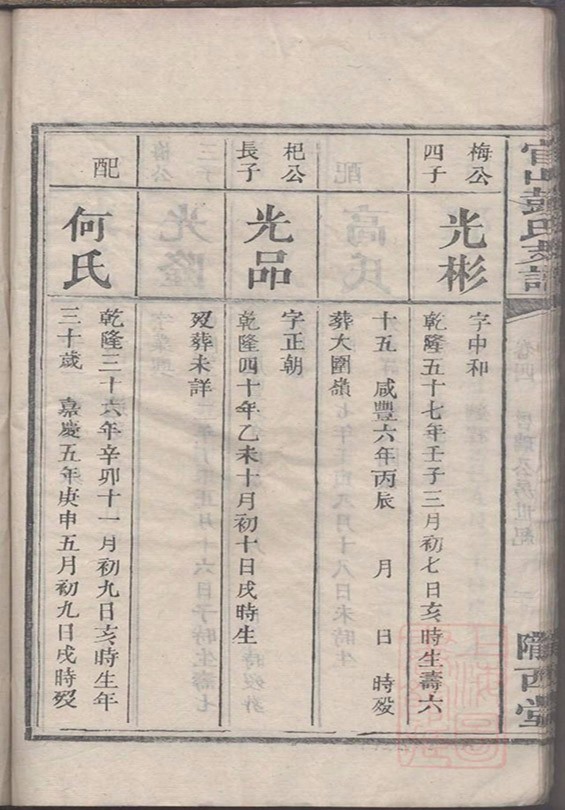 官山彭氏支譜
隴西堂
梅公
四子
光彬
字中和
乾隆五十七年壬子三月初七日亥時生壽六
十五 咸豐六年丙辰 月 日 時歿
葬大圍嶺
杞公
長子
光品
字正朝
乾隆四十年乙未十月初十日戌時生
歿葬未詳
配
何氏
乾隆三十六年辛卯十一月初九日亥時生年
三十歲 嘉慶五年庚申五月初九日戌時歿